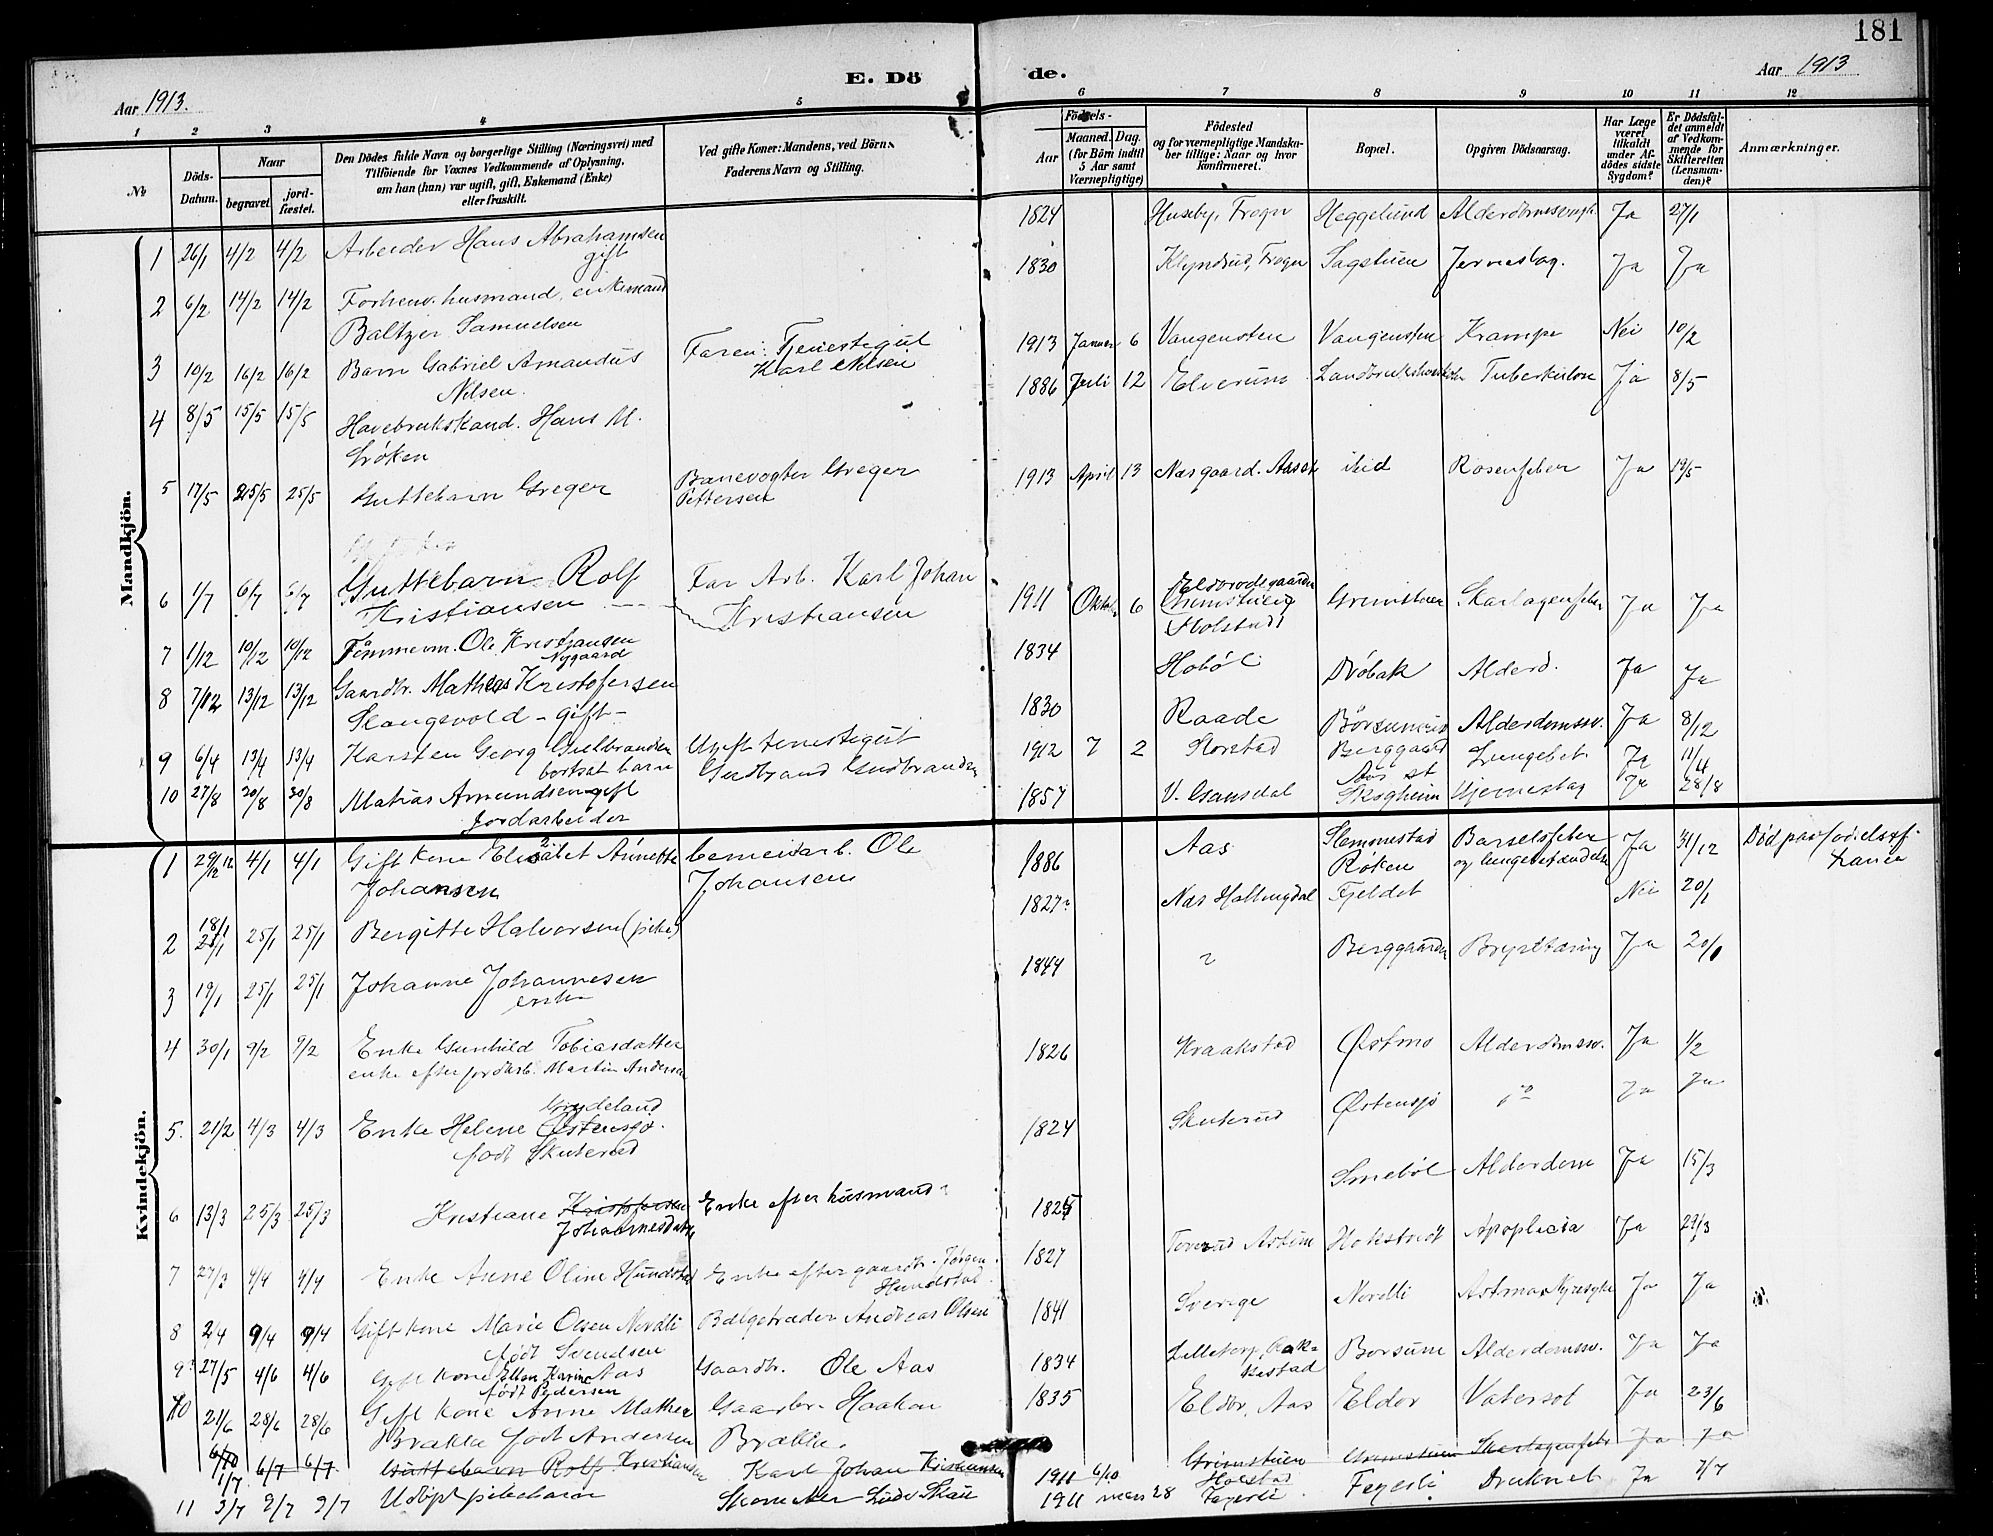 181
E. Dö de.
Aar 1913. Aar 1913
1 2 3 4 5 6 7 8 9 10 11 12
№ Döds-Datum. Naar begravet. jordfæstet.
Den Dödes fulde Navn og borgerlige Stilling (Næringsvei) med
Tilföiende for Voxnes Vedkommende af Oplysning,
om han (hun) var ugift, gift, Enkemand (Enke)
eller fraskilt.
Ved gifte Koner: Mandens, ved Börn:
Faderens Navn og Stilling.
Födsels-
Aar Maaned. Dag.
(for Börn indtil
5 Aar samt
Værnepligtige)
Födested
og for værnepligtige Mandska-
ber tillige: Naar og hvor
konfirmeret.
Bopæl. Opgiven Dödsaarsag.
Har Læge
været
tilkaldt
under Af-
dödes sidste
Sygdom?
Er Dödsfal-
det anmeldt
af Vedkom-
mende for
Skifteretten
(Lensman-
den)?
Anmærkninger.
Mandkjön.
1 26/1 4/2 4/2 Arbeider Hans Abrahamsen 1824 Huseby, Frogn Heggelund Ja 27/1
gift
2 6/2 14/2 14/2 Forhenv. husmand, enkemand 1830 Frogn Sagstuen Ja Ja
Baltzer Samuelsen
3 10/2 16/2 16/2 Barn Gabriel Amandus Faren: Tjenestegut 1913 Januar 6 Vangensten Vangensten Krampe Nei 10/2
Nilsen. Karl Nilsen
4 8/5 15/5 15/5 Havebrukskand. Hans M. 1886 Juli 12 Elverum Tuberkulose Ja 8/5
Gröken
5 17/5 25/5 25/5 Guttebarn Greger Banevogter Greger 1913 April 13 Næsgaard. Aas ibid Rosenfeber Ja 19/5
Pettersen
6 1/7 6/7 6/7 Guttebarn Rolf Far Arb. Karl Johan 1911 Oktob. 6 Grimstuen Skarlagensfeber Ja Ja
Kristiansen Kristiansen Holstad
7 1/12 10/12 10/12 Tömmerm. Ole Kristiansen 1834 Hobøl Drøbak Alderd. Ja Ja
Nygaard
8 7/12 13/12 13/12 Gaardbr. Mathias Kristofersen 1830 Raade Alderdomssv. Ja 8/12
gift
9 6/4 13/4 13/4 Karsten Georg Gulbrandsen Ugift tjenestegut 1912 7 2 Storstad Berggaard Lungebet. Ja 11/4
bortsat barn Gudbrand Gudbrandsen Aas st
10 27/8 30/8 30/8 Matias Amundsen gift 1857 V. Gansdal Skogheim Hjerneslag Ja 28/8
Jordarbeider
Kvindekjön.
1 29/12 12 4/1 4/1 Gift kone Elisabet Annette Cementarb. Ole 1886 Aas Slemmestad Barselfeber Ja 31/12 Død paa fødselsf-
Johansen Johansen Røken og lungebetændelse
2 18/1 25/1 25/1 Bergitte Halvorsen (pike) 1827 Næs Hallingdal Fjeldet Nei 20/1
3 19/1 25/1 25/1 Johanne Johannesen 1844 Berggaarden Brysttæring Ja 20/1
enke
4 30/1 9/2 9/2 Enke Gunhild Tobiasdatter 1826 Kraakstad Østmo Alderdomssv. Ja 1/2
enke efter jordarb. Martin Andersen
5. 21/2 4/3 4/3 Enke Helene Østensjø. 1824 Skuterud Østensjø Ja Ja
født Skuterud
6 13/3 25/3 25/3 Kristiane Kristofersen Enke efter husmand 1825 Smebøl Alderdom Ja 15/3
Johannesdatter
7 27/3 4/4 4/4 Enke Anne Oline Hundstad Enke efter gaardbr. Jørgen 1827 Apoplexia Ja 29/3
8 2/4 9/4 9/4 Gift kone Marie Olsen Nordli Bælgetræder Andreas Olsen 1841 Sverige Nordli Astma Nyresyke Ja Ja
født Svendsen
9 27/5 4/6 4/6 Gift kone Ellen Karine Aas Gaardbr. Ole Aas 1834 Lilletorp, Rakkestad Borsum Alderdomssv. Ja Ja
født Pedersen
10 21/6 28/6 28/6 Gift kone Anne Mathea Gaardbr. Haakon 1835 Eldor, Aas Eldor Vatersot Ja 23/6
Brække født Andersen Brække.
1/7 6/7 6/7 Guttebarn Rolf Kristiansen Karl Johan Kristiansen 1911 6/10 Grimstuen Grimstuen Skarlagensfeber Ja Ja
Holstad
11 3/7 9/7 9/7 Udøpt pikebarn Skomaker Skau 1911 mars 28 Fagerli Fagerli Druknet Ja 7/7